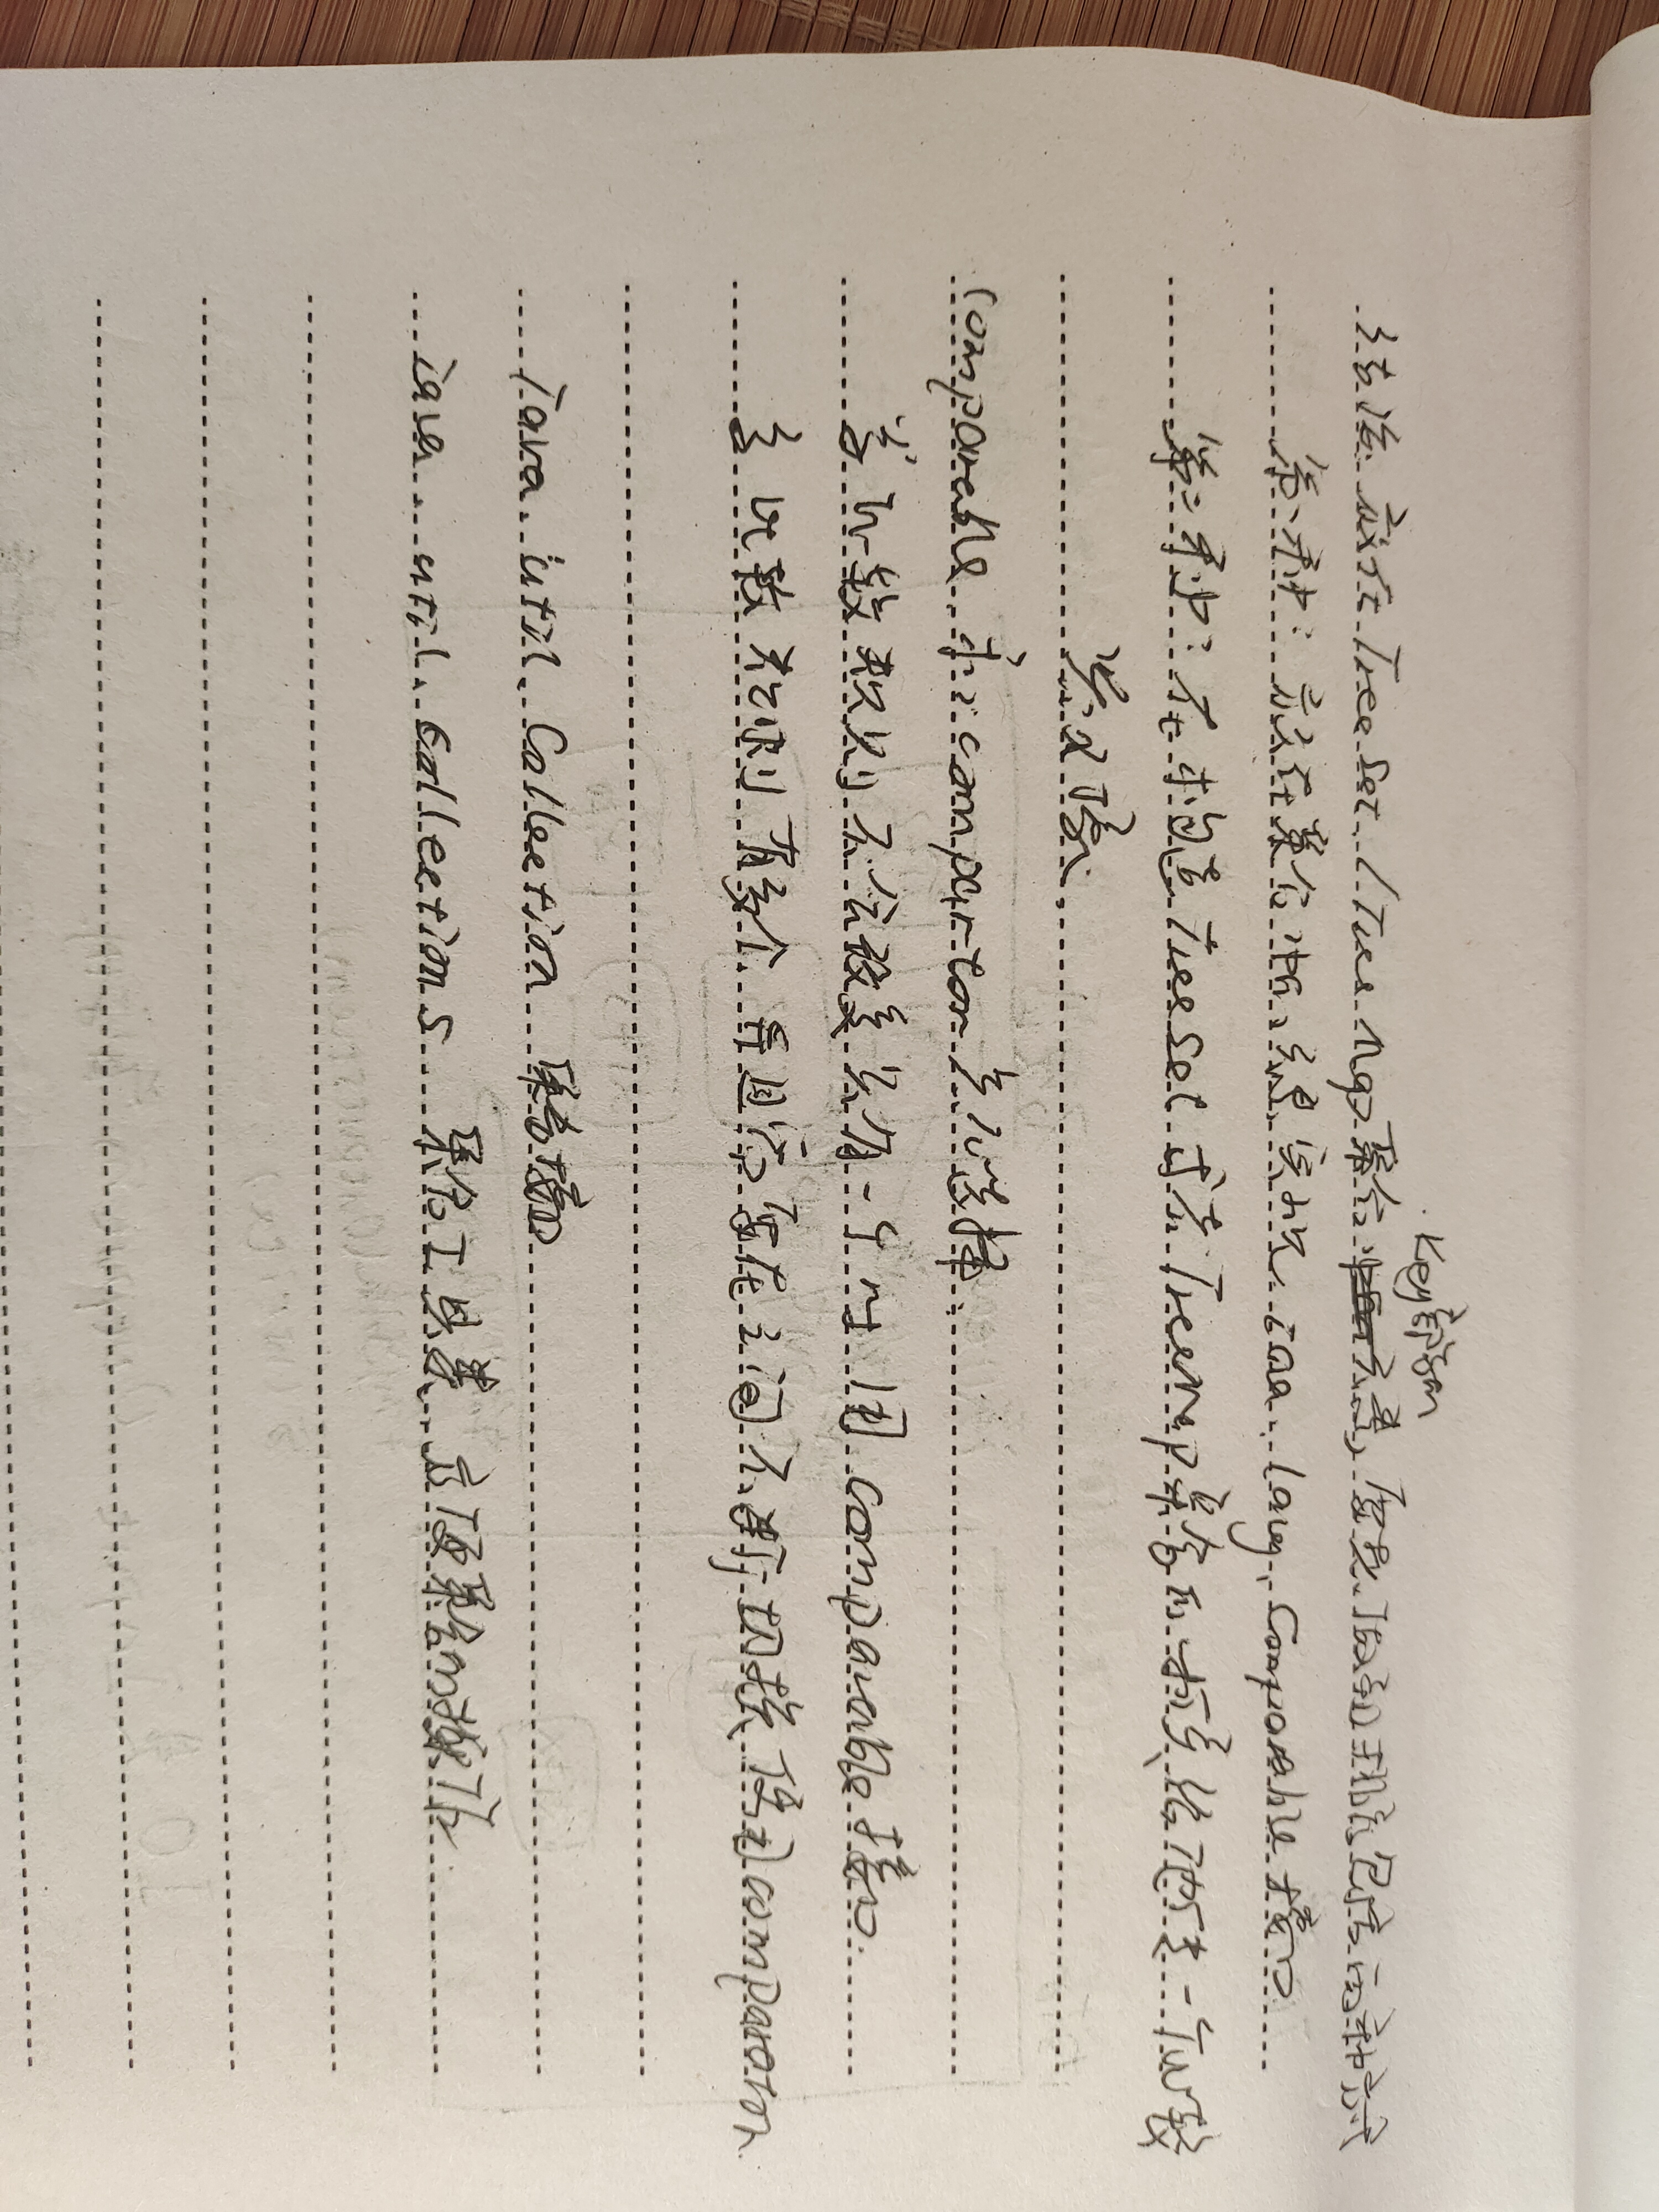 结论 放到TreeSet/TreeMap集合key部分元素,要想做到排序包括两种方式
第一种:放在集合中的元素实现 java.lang.Comparable接口
第二种:在构造TreeSet或者TreeMap集合的时候给它传一个比较
器对象.
Comparable 和 comparator怎么选择:
当比较规则不会改变只有一个时用 comparable接口.
当比较规则有多个 并且需要在之间不断切换使用comparator
java.util.Collection 集合接口
java.util.collections 集合工具类 方便集合的操作.